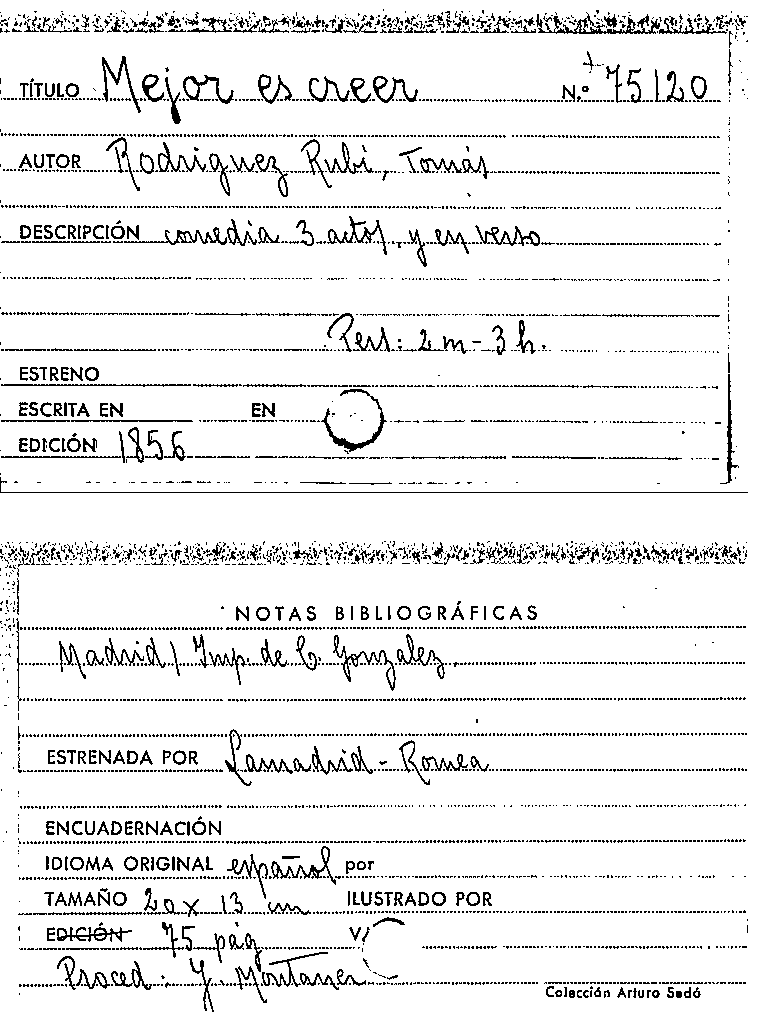 TÍTULO Mejor es creer N.º + 75120
AUTOR Rodriguez Rubí, Tomás
DESCRIPCIÓN comedia 3 actos, y en verso
Pers: 2 m - 3 h.
ESTRENO
ESCRITA EN EN
EDICIÓN 1856
NOTAS BIBLIOGRÁFICAS
Madrid / Imp. de C. Gonzalez.
ESTRENADA POR Lamadrid - Romea
ENCUADERNACIÓN
IDIOMA ORIGINAL español por
TAMAÑO 20 x 13 cm ILUSTRADO POR
EDICIÓN 75 pág V/
Proced: Y. Montaner
Colección Arturo Sedó